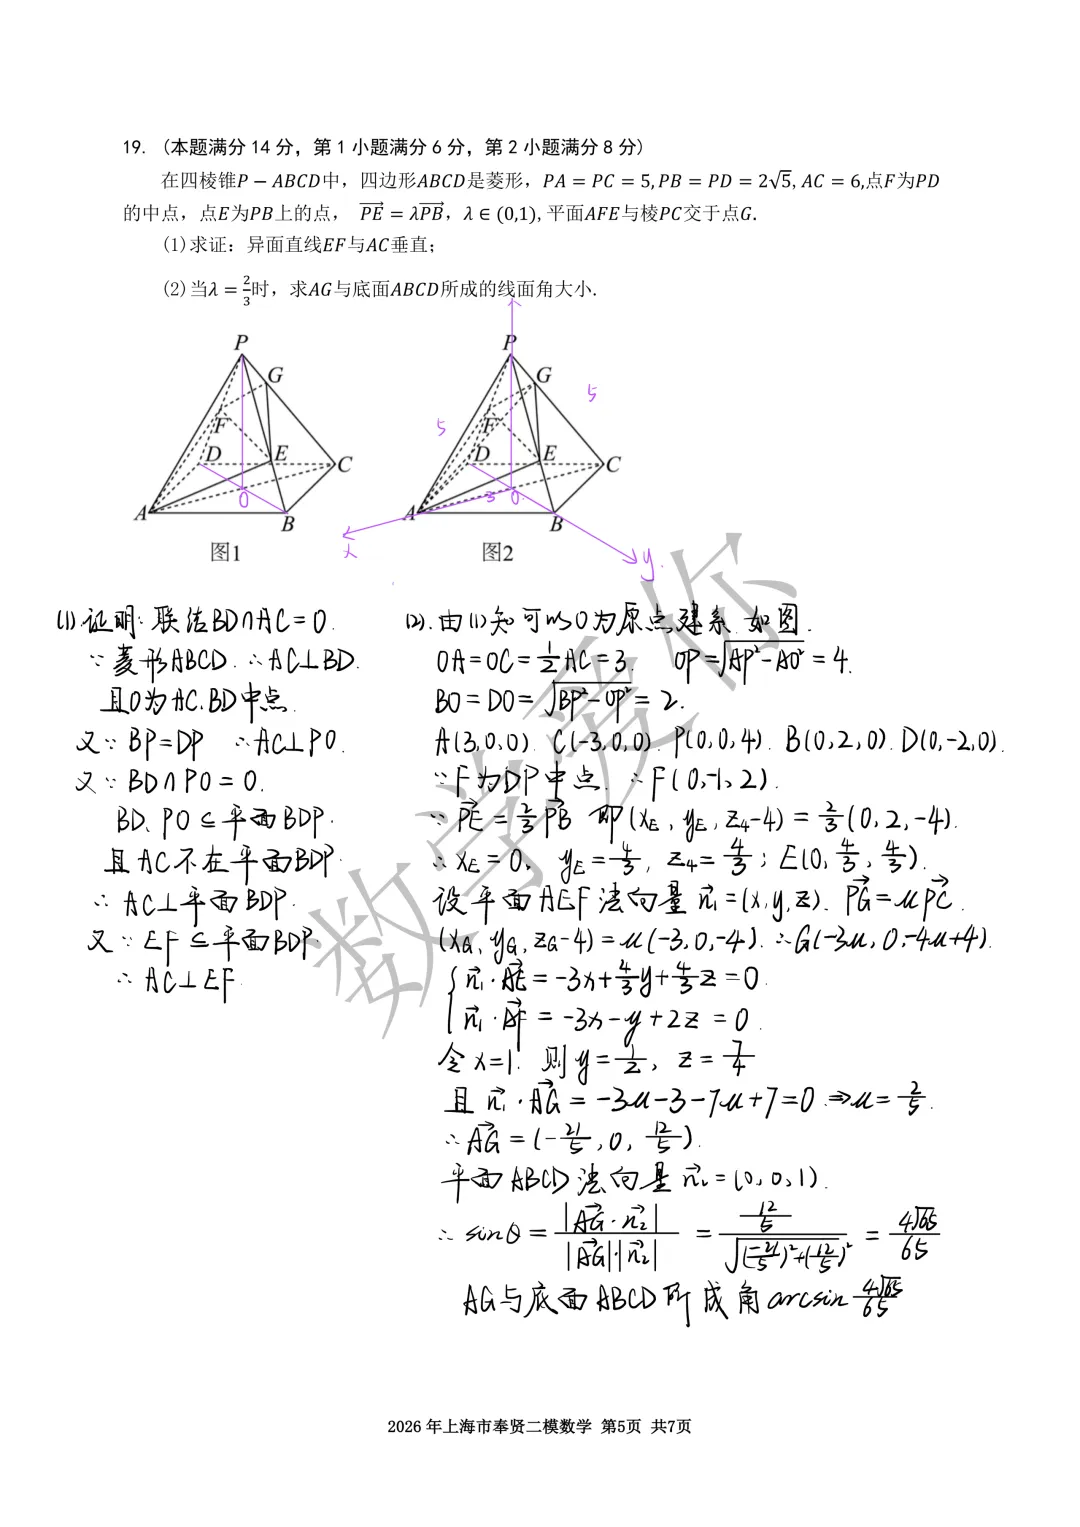 19. (本题满分 14 分，第 1 小题满分 6 分，第 2 小题满分 8 分)
在四棱锥P − ABCD中，四边形ABCD是菱形，PA = PC = 5, PB = PD = 2√5, AC = 6,点F为PD
的中点，点E为PB上的点， PE→ = λPB→，λ ∈ (0,1), 平面AFE与棱PC交于点G.
(1)求证：异面直线EF与AC垂直；
(2)当λ = 2/3时，求AG与底面ABCD所成的线面角大小.
P
G
F
D
E
C
A
O
B
x
图1
P
G
5
5
F
D
E
C
A
3
O
B
y
图2
(1)证明: 联结BD∩AC=O.
∵菱形ABCD. ∴AC⊥BD.
且O为AC.BD中点.
又∵BP=DP ∴AC⊥PO.
又∵BD∩PO=O.
BD、PO⊆平面BDP.
且AC不在平面BDP.
∴AC⊥平面BDP.
又∵EF⊆平面BDP.
∴AC⊥EF.
(2).由(1)知可以O为原点建系.如图.
OA=OC=1/2AC=3. OP=√(AP²-AO²)=4.
BO=DO=√(BP²-OP²)=2.
A(3,0,0). C(-3,0,0). P(0,0,4). B(0,2,0). D(0,-2,0).
∵F为DP中点. ∴F(0,-1,2).
∵PE→=2/3PB→ 即(xE, yE, z4-4)=2/3(0,2,-4).
∴xE=0, yE=4/3, z4=4/3; E(0,4/3,4/3).
设平面AEF法向量n1→=(x,y,z). PG→=μPC→.
(xG, yG, zG-4)=μ(-3,0,-4). ∴G(-3μ,0,-4μ+4).
{n1→·AE→=-3x+4/3y+4/3z=0.
n1→·AF→=-3x-y+2z=0.
令x=1. 则y=1/2, z=7/4
且n1→·AG→=-3μ-3-7μ+7=0 ⇒μ=2/5.
∴AG→=(-21/5,0,12/5).
平面ABCD法向量n2→=(0,0,1).
∴sinθ=|AG→·n2→|/|AG→||n2→|=(12/5)/√((-21/5)²+(12/5)²)=4√65/65
AG与底面ABCD所成角arcsin 4√65/65
数学爱你
2026 年上海市奉贤二模数学 第5页 共7页